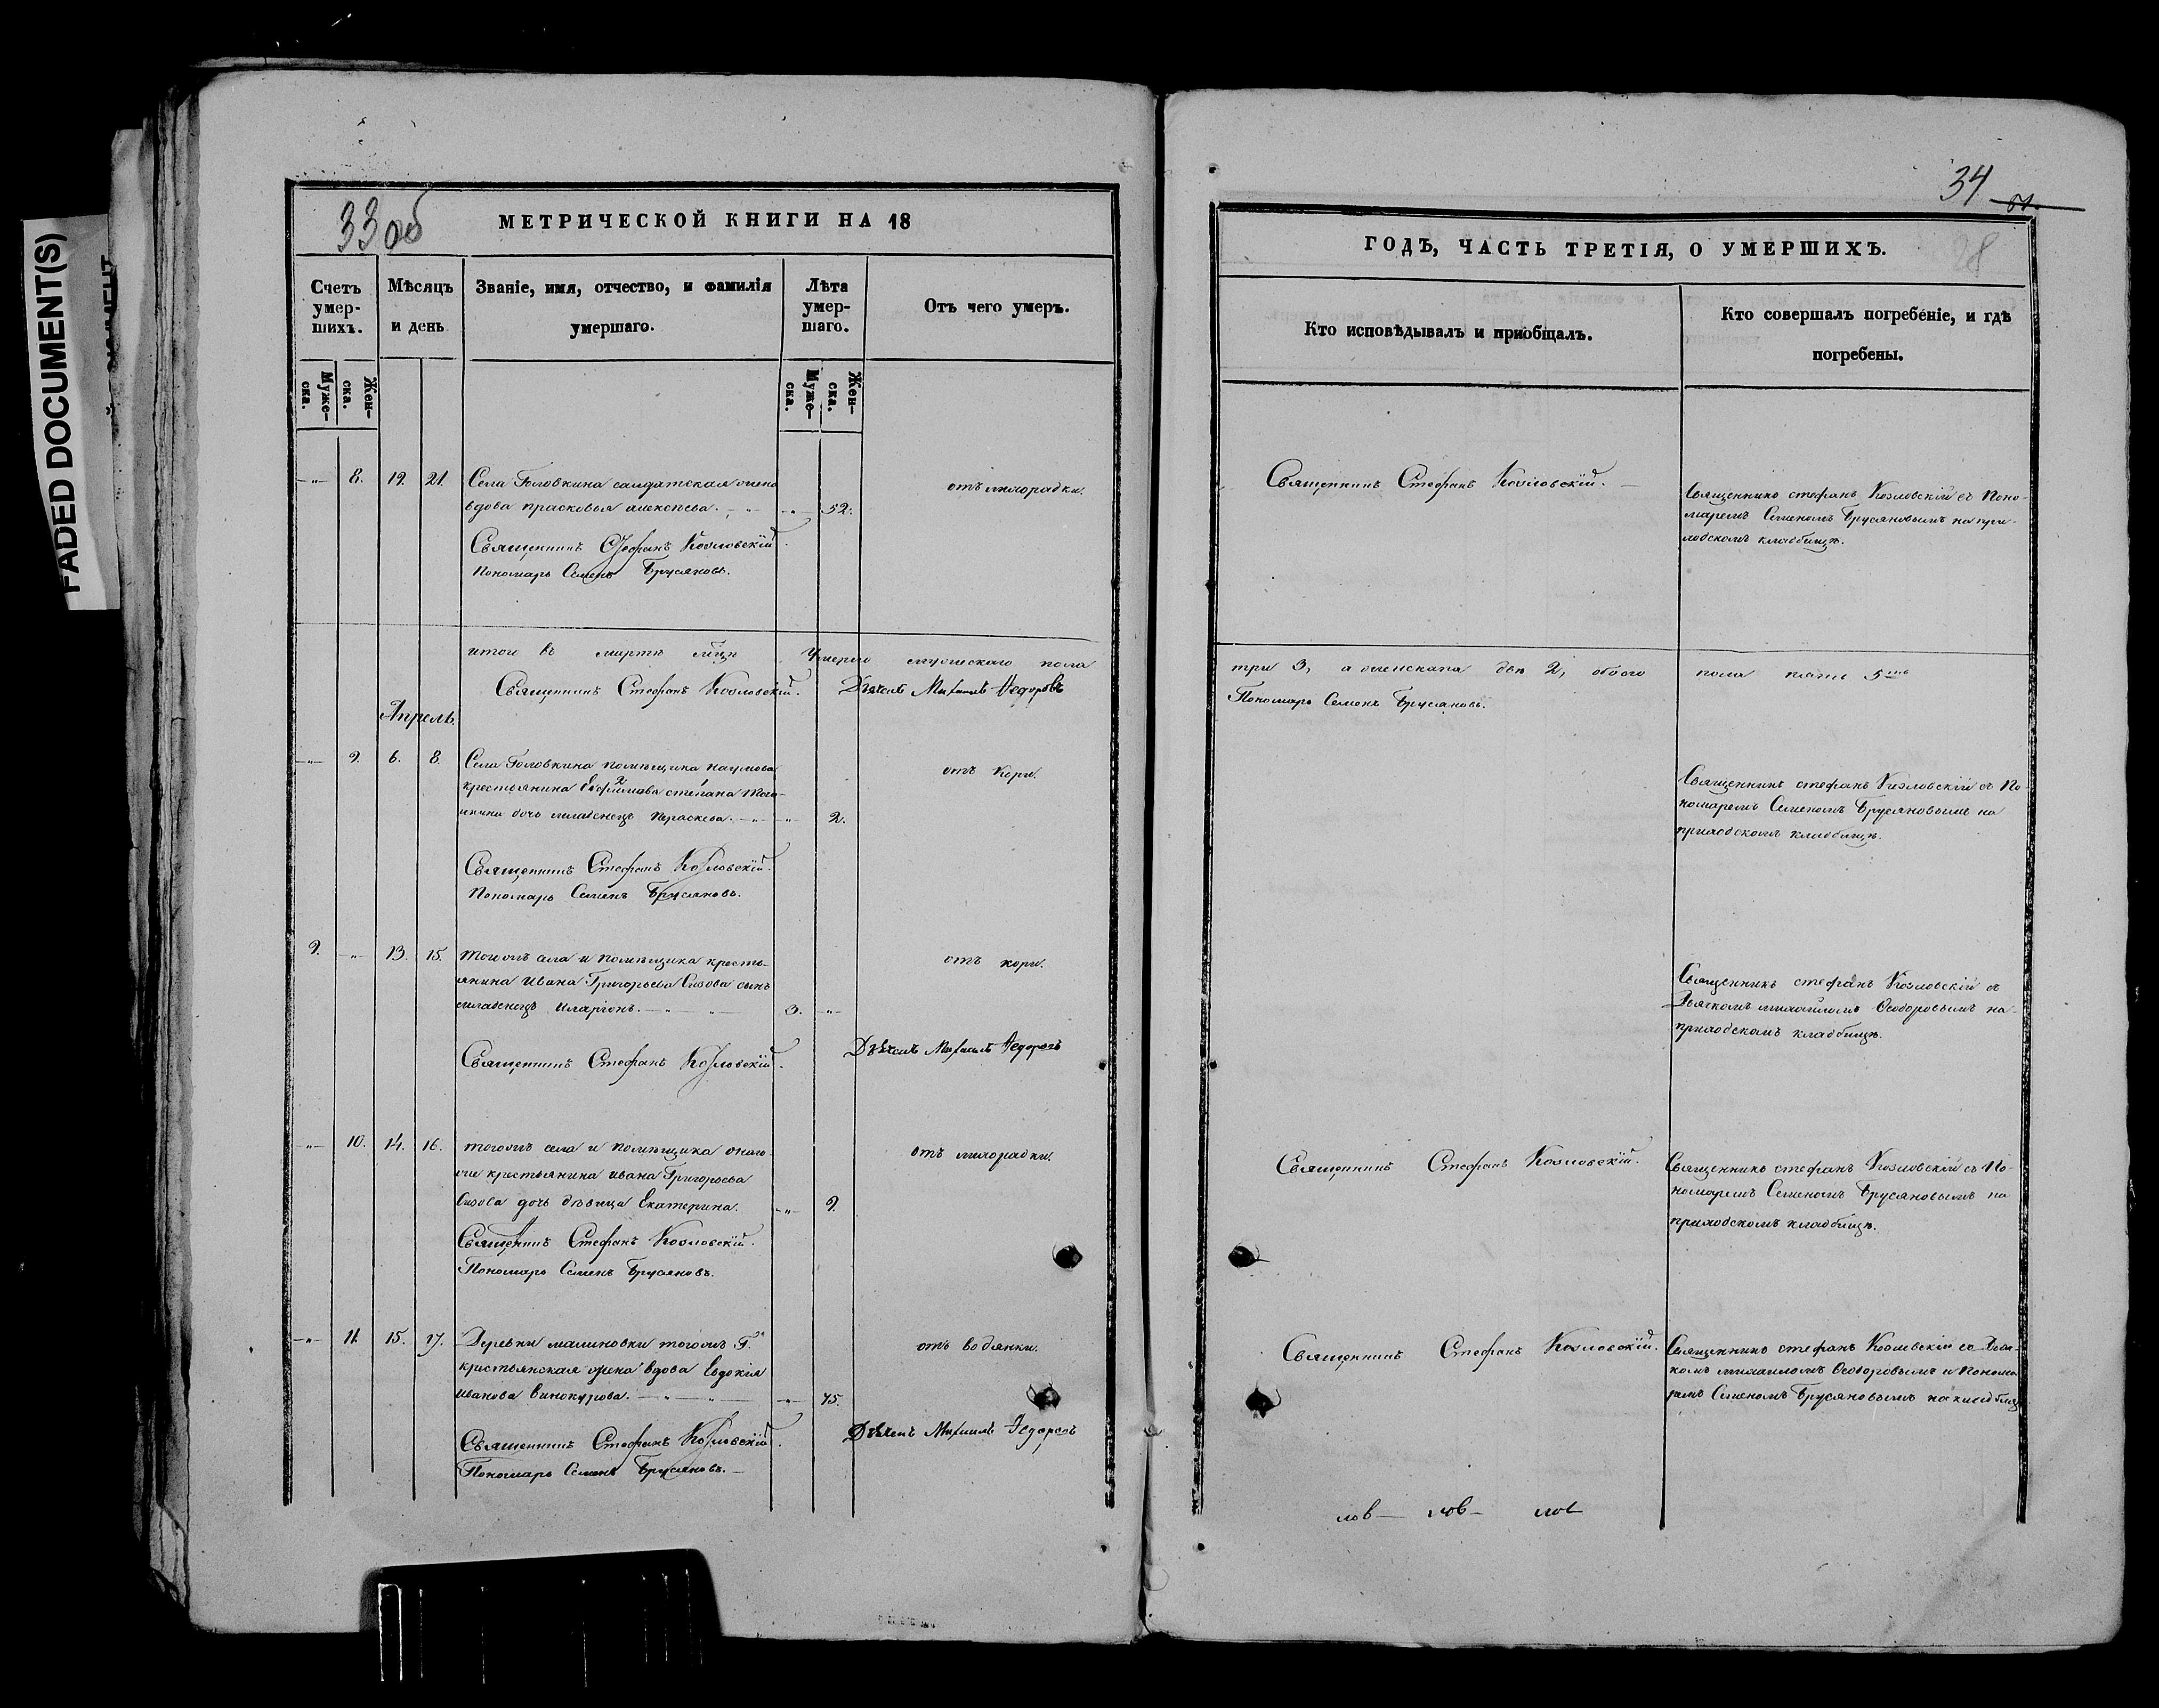 FADED DOCUMENT(S)
33 об
МЕТРИЧЕСКОЙ КНИГИ НА 18
Счетъ умер-шихъ.
Мѣсяцъ и день
Званіе, имя, отчество, и фамилія умершаго.
Лѣта умер-шаго.
Отъ чего умеръ.
Муже-ска.
Жен-ска.
Муже-ска.
Жен-ска.
8. 19. 21. Села Головкина салдатская жена
вдова прасковья алексѣева. 52. отъ лихорадки.
Священникъ Стефанъ Козловскій.
Пономарь Семенъ Брусяновъ.
итого въ мартѣ мѣцѣ Умерло мужескаго пола
Священникъ Стефанъ Козловскій. Дьяконъ Михаилъ Федоровъ
Апрель.
9. 6. 8. Села Головкина помѣщика наумова
крестьянина степана
дочь младенецъ Параскева. 2. отъ кори.
Священникъ Стефанъ Козловскій.
Пономарь Семенъ Брусяновъ.
9. 13. 15. тогожъ села и помѣщика кресть-
янина Ивана Григорьева Сизова сынъ
младенецъ Иларіонъ. 3. отъ кори.
Священникъ Стефанъ Козловскій. Дьяконъ Михаилъ Федоровъ
10. 14. 16. тогожъ села и помѣщика онаго-
же крестьянина Ивана Григорьева
Сизова дочь дѣвица Екатерина. 9. отъ лихорадки.
Священникъ Стефанъ Козловскій.
Пономарь Семенъ Брусяновъ.
11. 15. 17. Деревни малиновки тогожъ Г.
крестьянская жена вдова Евдокія
Иванова Винокурова. 75. отъ водянки.
Священникъ Стефанъ Козловскій. Дьяконъ Михаилъ Федоровъ
Пономарь Семенъ Брусяновъ.
34
28
ГОДЪ, ЧАСТЬ ТРЕТІЯ, О УМЕРШИХЪ.
Кто исповѣдывалъ и пріобщалъ.
Кто совершалъ погребеніе, и гдѣ погребены.
Священникъ Стефанъ Козловскій.
Священникъ стефанъ Козловскій съ Поно-
маремъ Семеномъ Брусяновымъ на при-
ходскомъ кладбищѣ.
три 3, а женскаго двѣ 2, обоего пола пять 5
Пономарь Семенъ Брусяновъ.
Священникъ стефанъ Козловскій съ По-
номаремъ Семеномъ Брусяновымъ на
приходскомъ кладбищѣ.
Священникъ стефанъ Козловскій съ
Дьякономъ михаиломъ Ѳеодоровымъ на
приходскомъ кладбищѣ.
Священникъ Стефанъ Козловскій.
Священникъ стефанъ Козловскій съ По-
номаремъ Семеномъ Брусяновымъ на
приходскомъ кладбищѣ.
Священникъ Стефанъ Козловскій.
Священникъ стефанъ Козловскій со Дья-
кономъ михаиломъ Ѳеодоровымъ и Понома
ремъ Семеномъ Брусяновымъ на кладбищ